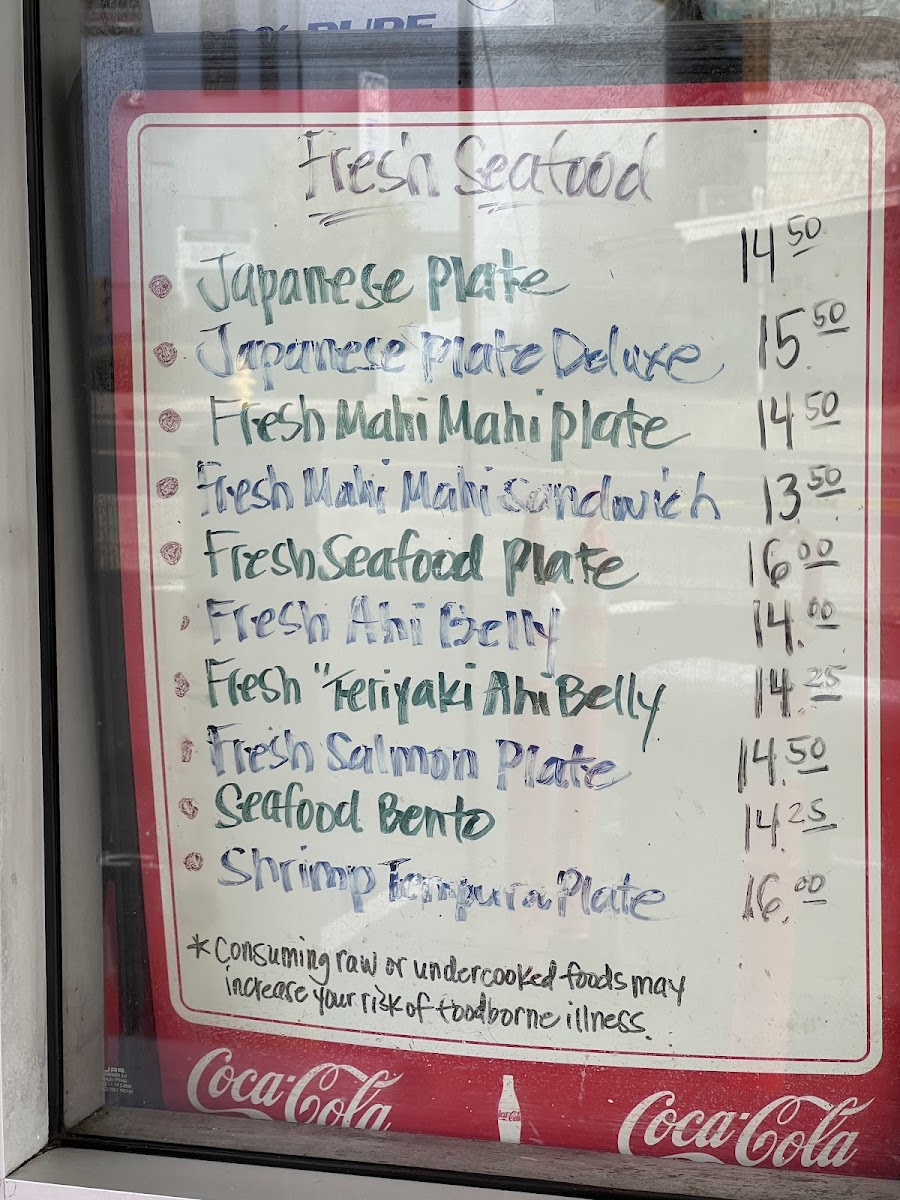 Fresh Seafood
Japanese Plate 14.50
Japanese Plate Deluxe 15.50
Fresh Mahi Mahi plate 14.50
Fresh Mahi Mahi Sandwich 13.50
Fresh Seafood Plate 16.00
Fresh Ahi Belly 14.00
Fresh "Teriyaki Ahi Belly 14.25
Fresh Salmon Plate 14.50
Seafood Bento 14.25
Shrimp Tempura Plate 16.00
*Consuming raw or undercooked foods may
increase your risk of foodborne illness
Coca-Cola Coca-Cola Coca-Cola